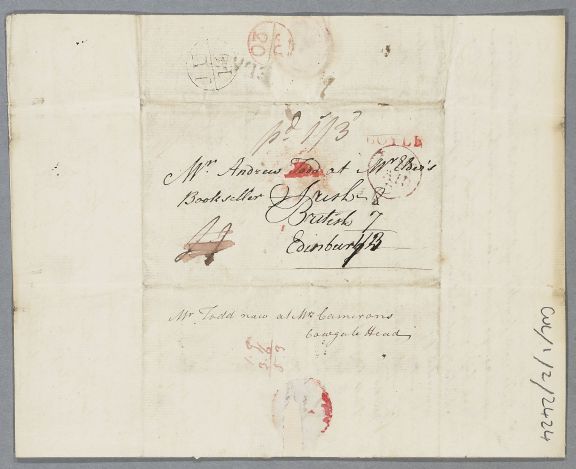 JU
20
pd 1/3
BOYLE
Mr. Andrew Todd at Mr Elder's
Bookseller Irish 8
British 7
Edinburgh 1/3
Mr Todd now at Mr Camerons
Cowgate Head
CUL/1/2/2424